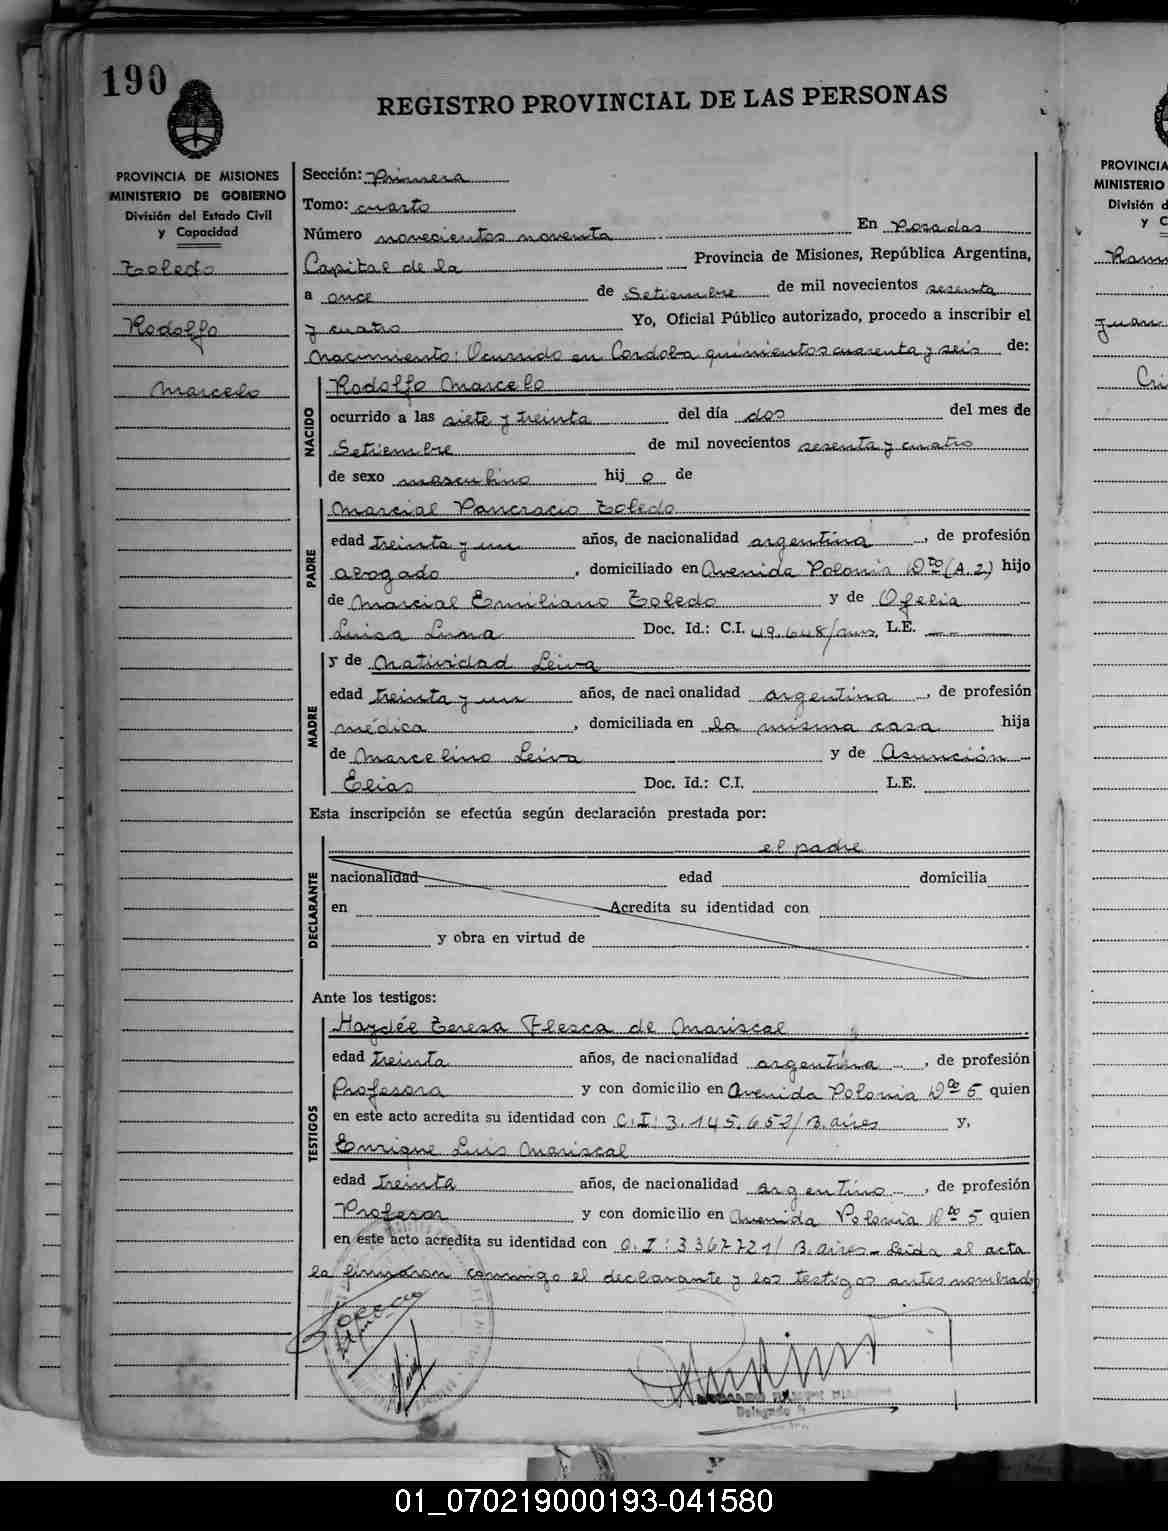 190
REGISTRO PROVINCIAL DE LAS PERSONAS
PROVINCIA DE MISIONES
MINISTERIO DE GOBIERNO
División del Estado Civil
y Capacidad
Toledo
Rodolfo
Marcelo
Sección: Primera
Tomo: cuarto
Número novecientos noventa En Posadas
Capital de la Provincia de Misiones, República Argentina,
a once de Setiembre de mil novecientos sesenta
y cuatro Yo, Oficial Público autorizado, procedo a inscribir el
Nacimiento: Ocurrido en Cordoba quinientos cuarenta y seis de:
NACIDO
Rodolfo Marcelo
ocurrido a las siete y treinta del día dos del mes de
Setiembre de mil novecientos sesenta y cuatro
de sexo masculino hij o de
PADRE
Marcial Pancracio Toledo
edad treinta y un años, de nacionalidad argentina, de profesión
abogado, domiciliado en Avenida Polonia Dto (A.2) hijo
de Marcial Emiliano Toledo y de Ofelia
Luisa Luna Doc. Id.: C.I. 49.648/mns, L.E. --
MADRE
y de Natividad Leiva
edad treinta y un años, de nacionalidad argentina, de profesión
médica, domiciliada en la misma casa hija
de Marcelino Leiva y de Asunción
Elias Doc. Id.: C.I. L.E.
Esta inscripción se efectúa según declaración prestada por:
DECLARANTE
el padre
nacionalidad edad domicilia
en Acredita su identidad con
y obra en virtud de
Ante los testigos:
TESTIGOS
Haydée Teresa Flesca de Mariscal
edad treinta años, de nacionalidad argentina, de profesión
Profesora y con domicilio en Avenida Polonia Dto 5 quien
en este acto acredita su identidad con C.I: 3.145.652/B.aires y,
Enrique Luis Mariscal
edad treinta años, de nacionalidad argentino, de profesión
Profesor y con domicilio en Avenida Polonia Dto 5 quien
en este acto acredita su identidad con C.I: 3367721/ B.aires- Leida el acta
la firmaron conmigo el declarante y los testigos antes nombrados
Delegado
PROVINCIA
MINISTERIO
División d
y C
01_070219000193-041580